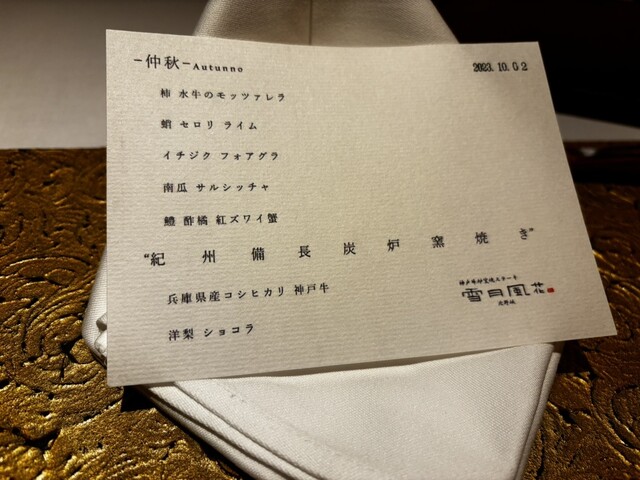 -仲秋-Autunno
2023.10.02
柿 水牛のモッツァレラ
蛸 セロリ ライム
イチジク フォアグラ
南瓜 サルシッチャ
鱧 酢橘 紅ズワイ蟹
“紀州備長炭炉窯焼き”
兵庫県産コシヒカリ 神戸牛
洋梨 ショコラ
神戸牛炉窯焼ステーキ
雪月風花
北野坂